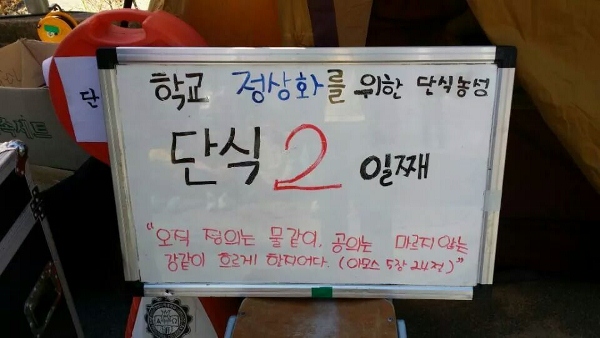 학교 정상화를 위한 단식농성
단식 2 일째
"오직 정의는 물같이, 공의는 마르지않는
강같이 흐르게 할지어다. (아모스 5장 24절)"
단